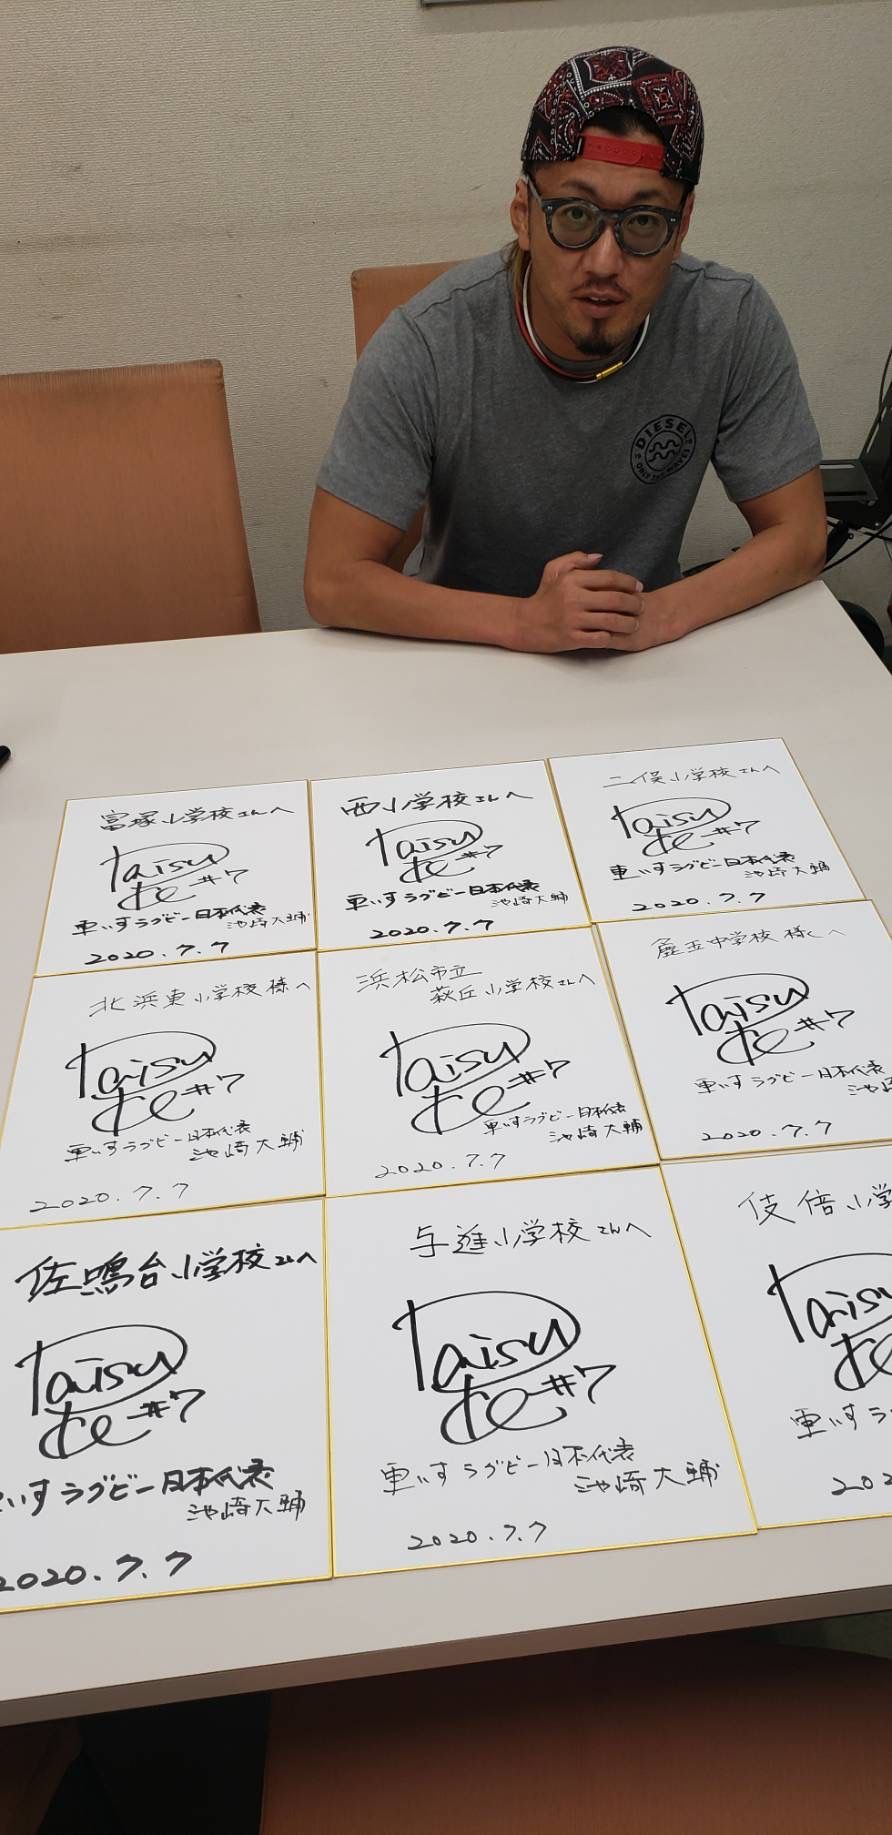 DIESEL
富塚小学校さんへ
Taisuke #7
車いすラグビー日本代表
池崎大輔
2020.7.7
西小学校さんへ
Taisuke #7
車いすラグビー日本代表
池崎大輔
2020.7.7
二俣小学校さんへ
Taisuke #7
車いすラグビー日本代表
池崎大輔
2020.7.7
北浜東小学校様へ
Taisuke #7
車いすラグビー日本代表
池崎大輔
2020.7.7
浜松市立
萩丘小学校さんへ
Taisuke #7
車いすラグビー日本代表
池崎大輔
2020.7.7
麁玉中学校様へ
Taisuke #7
車いすラグビー日本代表
池崎
2020.7.7
佐鳴台小学校さんへ
Taisuke #7
車いすラグビー日本代表
池崎大輔
2020.7.7
与進小学校さんへ
Taisuke #7
車いすラグビー日本代表
池崎大輔
2020.7.7
伎倍小学
Taisu
車いすラグビ
202